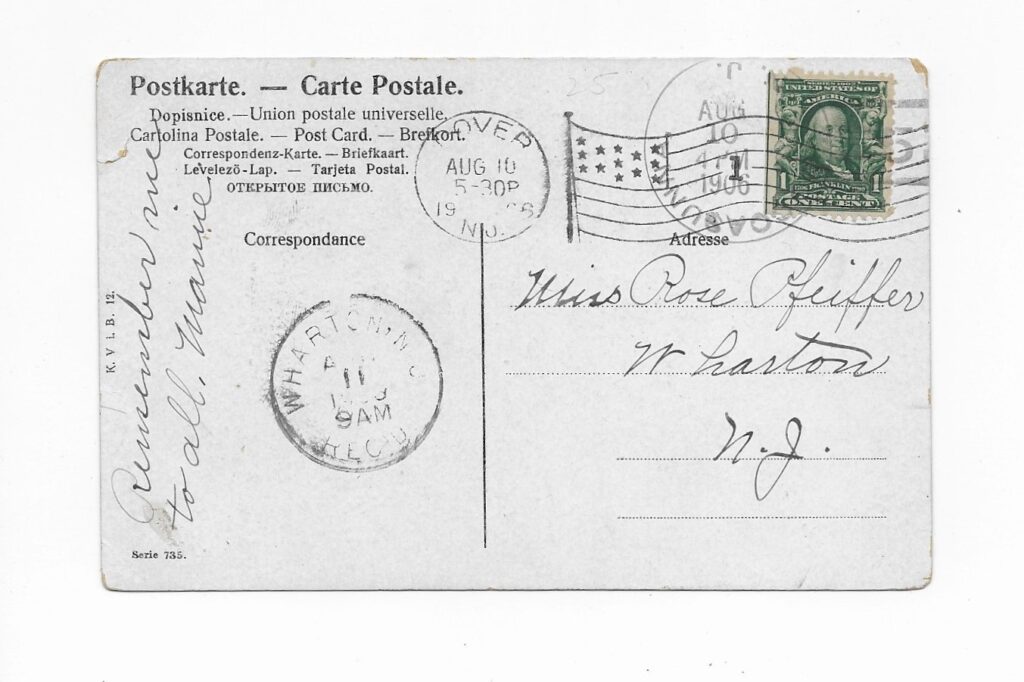 Postkarte. — Carte Postale.
Dopisnice. — Union postale universelle.
Cartolina Postale. — Post Card. — Brefkort.
Correspondenz-Karte. — Briefkaart.
Levelező-Lap. — Tarjeta Postal.
ОТКРЫТОЕ ПИСЬМО.
Correspondance
Adresse
DOVER
AUG 10
5-30P
N.J.
AUG
10
4 PM
1906
1
UNITED STATES OF
AMERICA
FRANKLIN
1 1
POSTAGE
ONE CENT
Miss Rose Pfeiffer
Wharton
N.J.
WHARTON, N
11
9AM
REC'D
Remember me
to all. Mamie
K. V i. B. 12.
Serie 735.